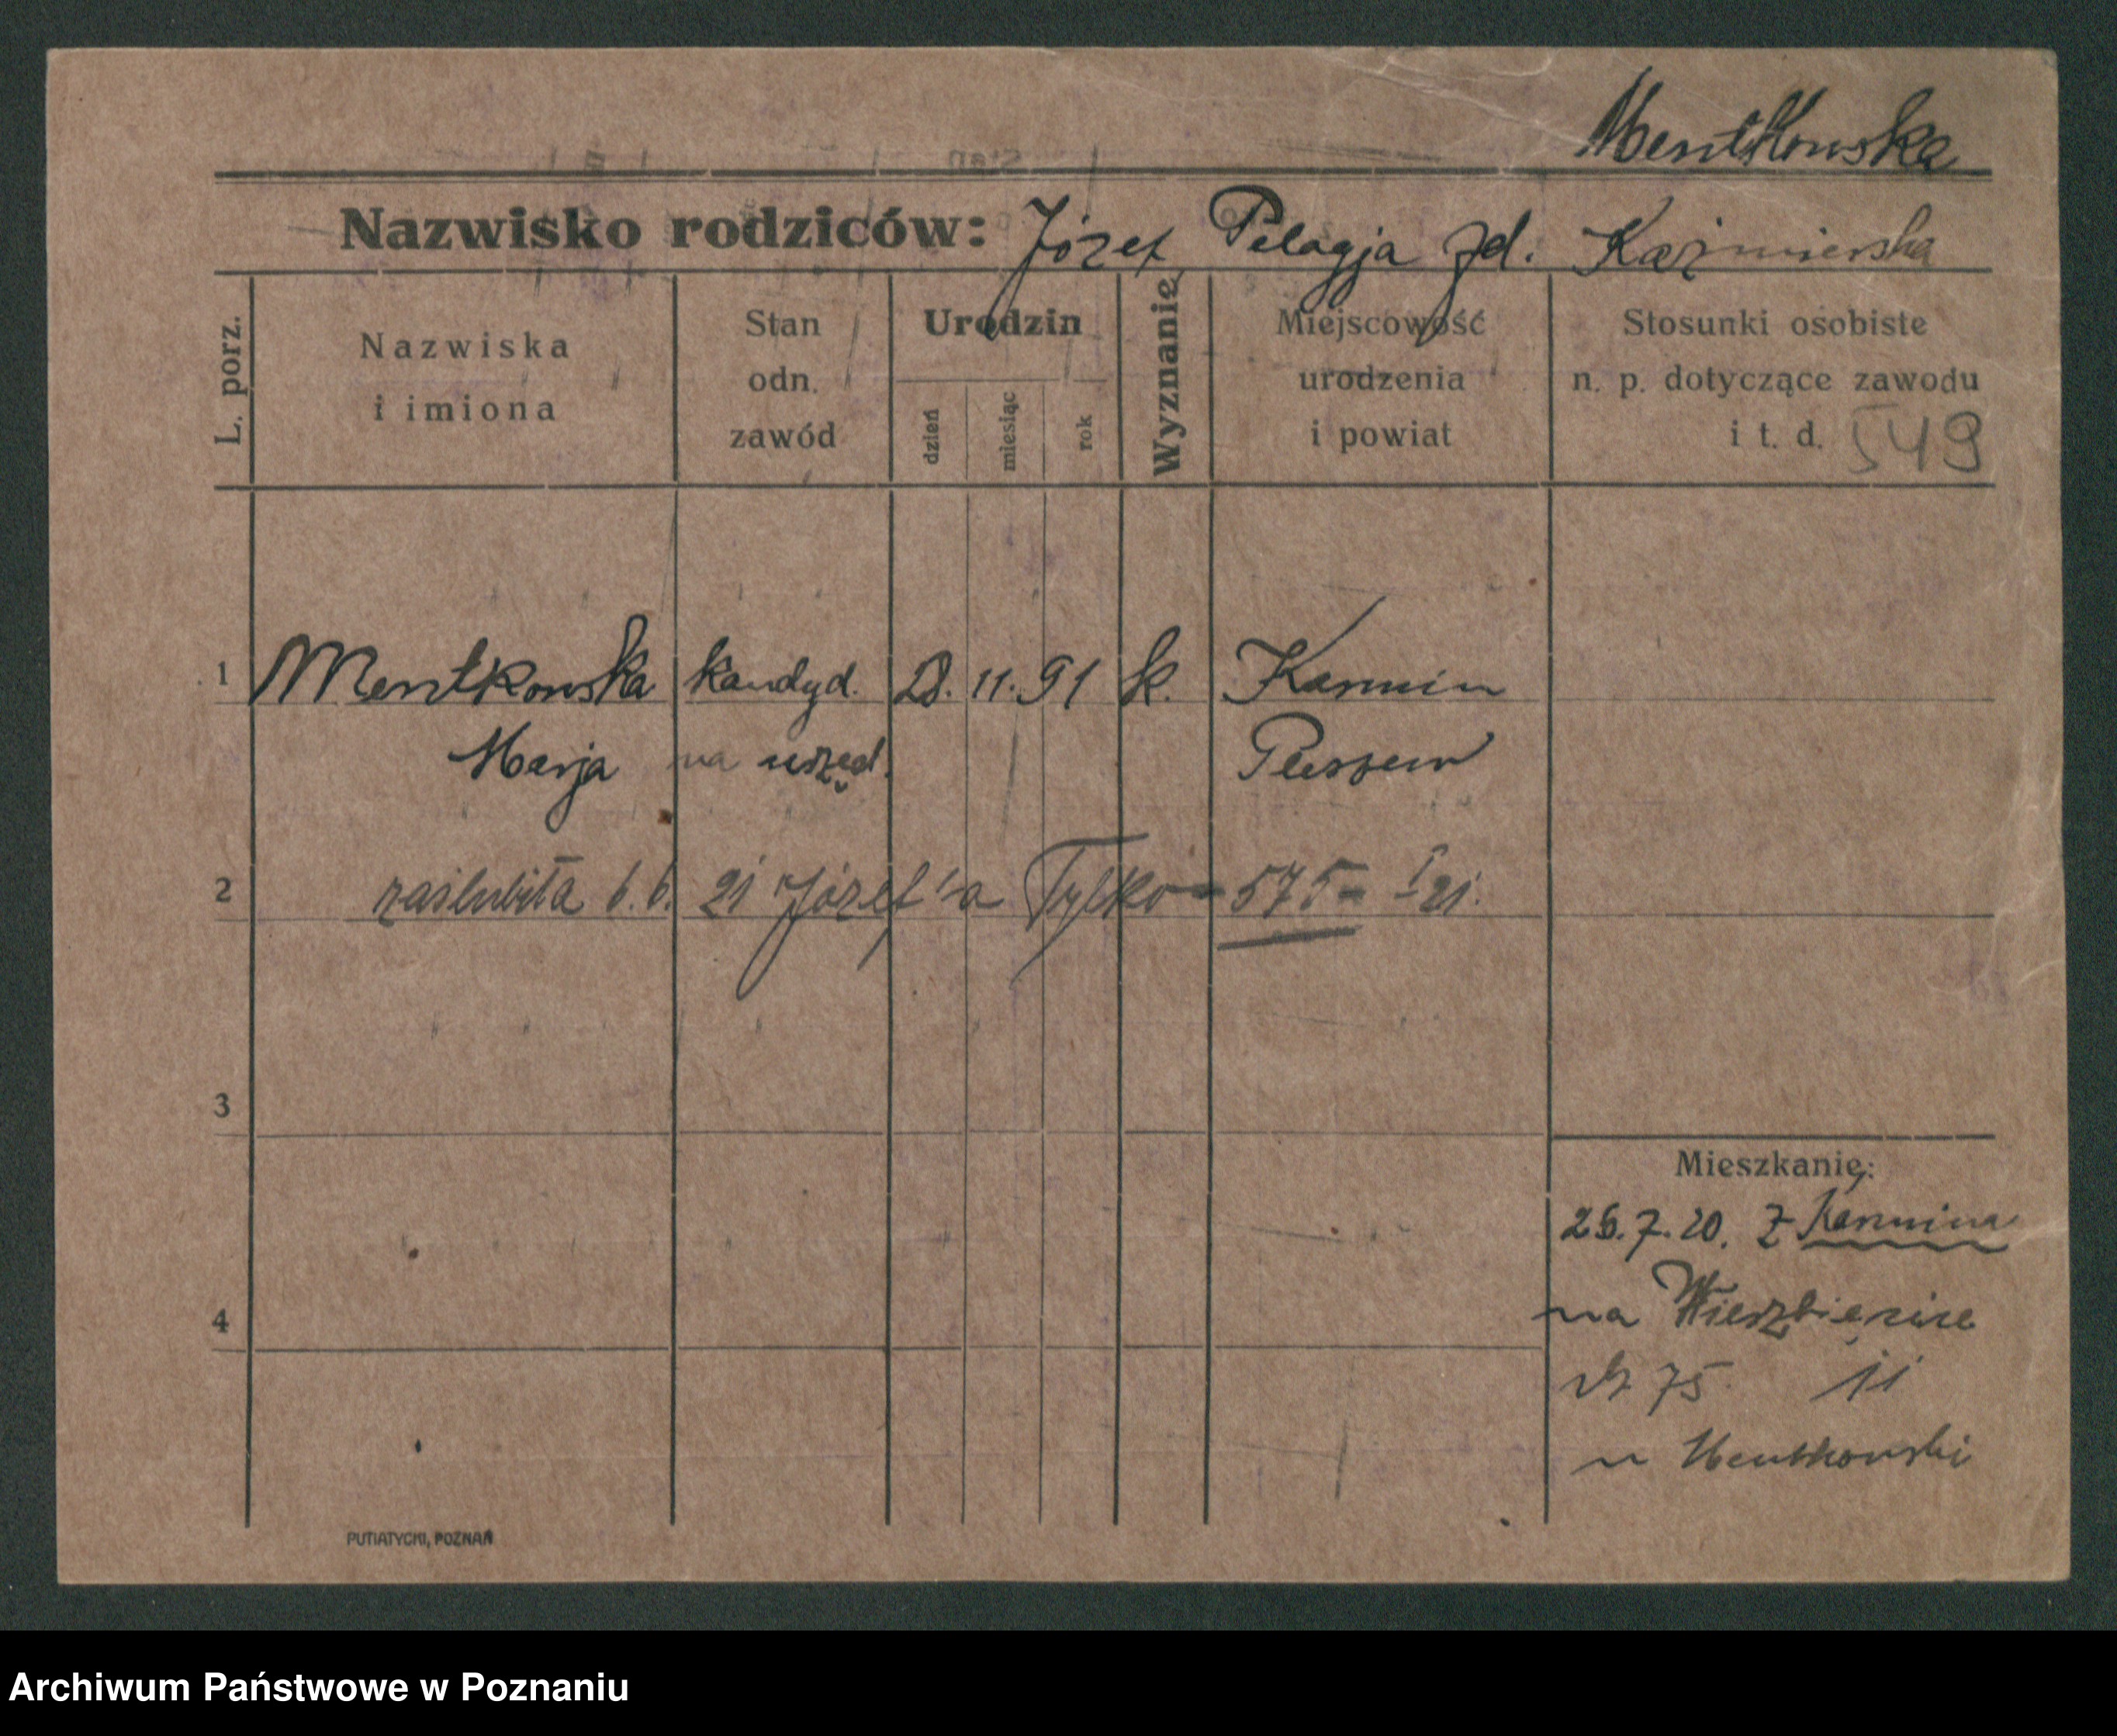 Mentkowska
Nazwisko rodziców: Józef Pelagja zd. Kaźmierska
L. porz.
Nazwiska
i imiona
Stan
odn.
zawód
Urodzin
dzień
miesiąc
rok
Wyznanie
Miejscowość
urodzenia
i powiat
Stosunki osobiste
n. p. dotyczące zawodu
i t. d. 549
1 Mentkowska kandyd. 11. 91 k. Karmin
Marja na urzęd. Pleszew
2 zaślubiła 6.6. 21 Józef'a Tylko = 575 = I 21.
3
4
Mieszkanie:
26.7.20. z Karmina
na Wierzbięcice
75 II
u Mentkowski
PUTIATYCKI, POZNAŃ
Archiwum Państwowe w Poznaniu